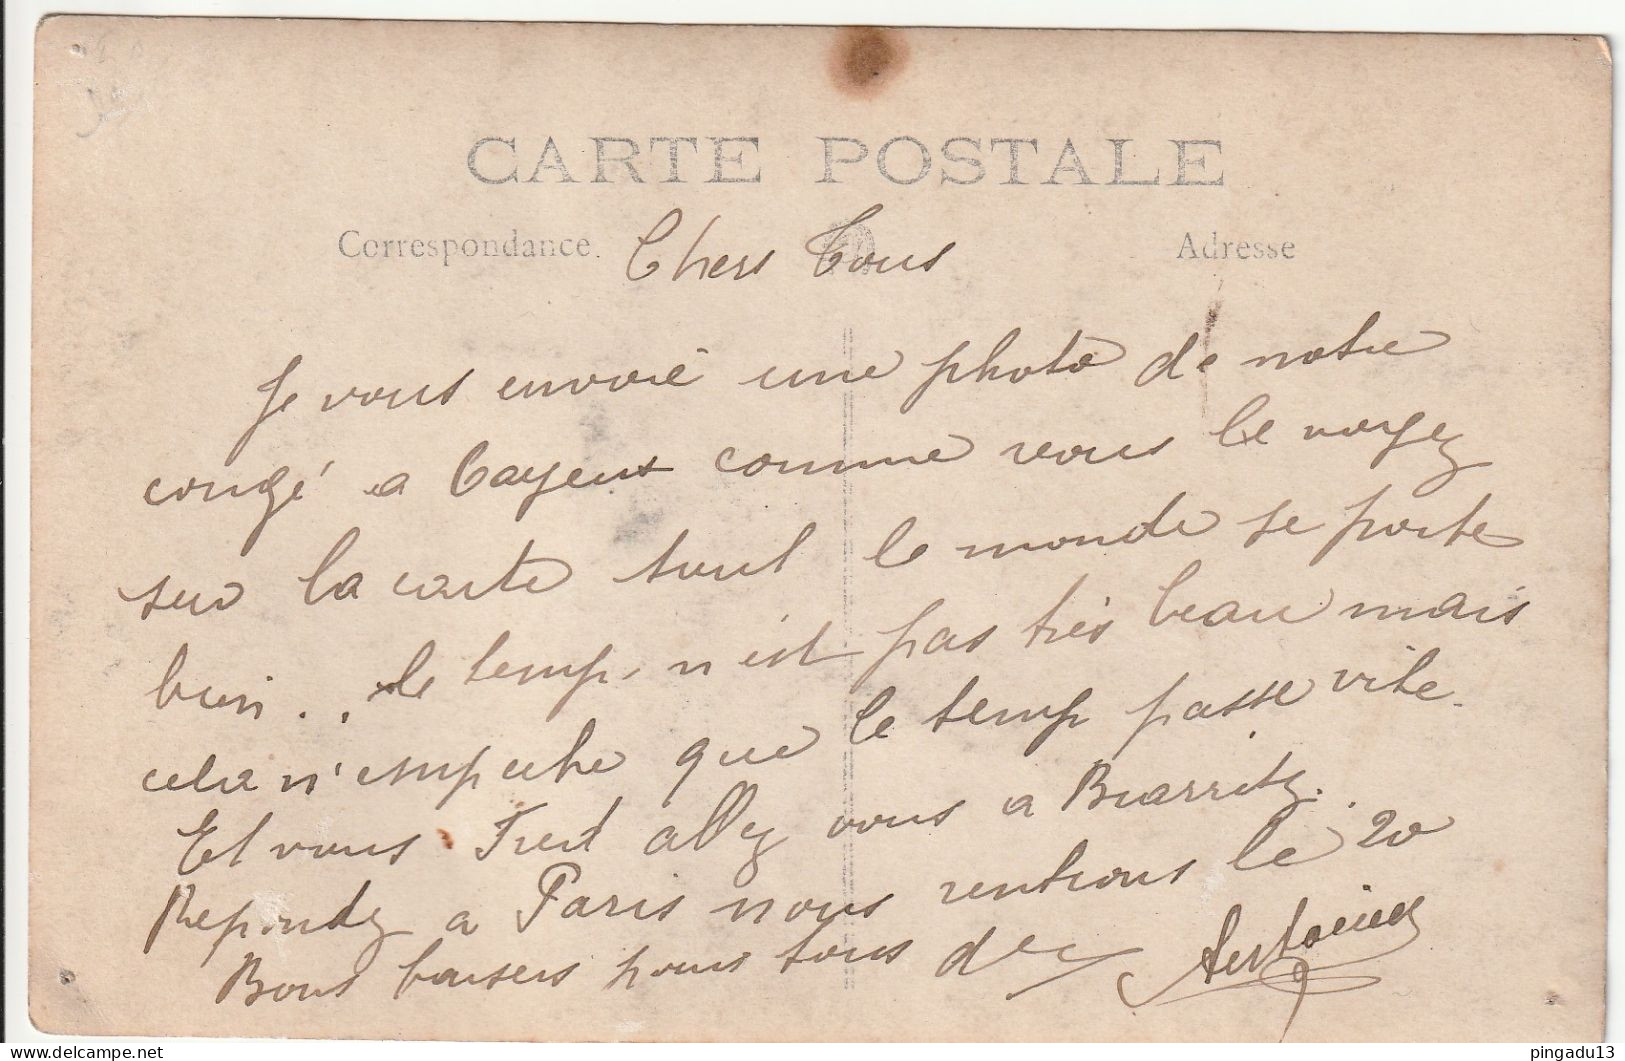 CARTE POSTALE
Correspondance. Adresse
Chers Tous
Je vous envoie une photo de notre
congé a Cayeux comme vous le voyez
sur la carte tout le monde se porte
bien .. le temp, n'est pas très beau mais
cela n'empeche que le temp passe vite.
Et vous Fred allez vous a Biarritz.
Repondez a Paris nous rentrons le 20
Bons baisers pour tous de
delcampe.net
pingadu13